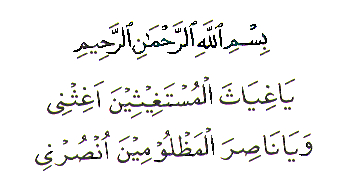 بِسْمِ ٱللَّهِ ٱلرَّحْمَٰنِ ٱلرَّحِيمِ
يَاغِيَاثَ الْمُسْتَغِيْثِيْنَ اَغِثْنِى
وَيَانَاصِرَ الْمَظْلُوْمِيْنَ اُنْصُرْنِى